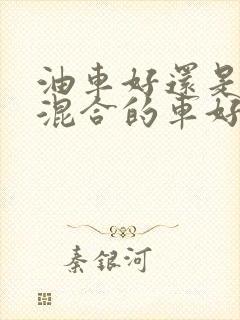 油車好還是
混合的車好
秦銀河